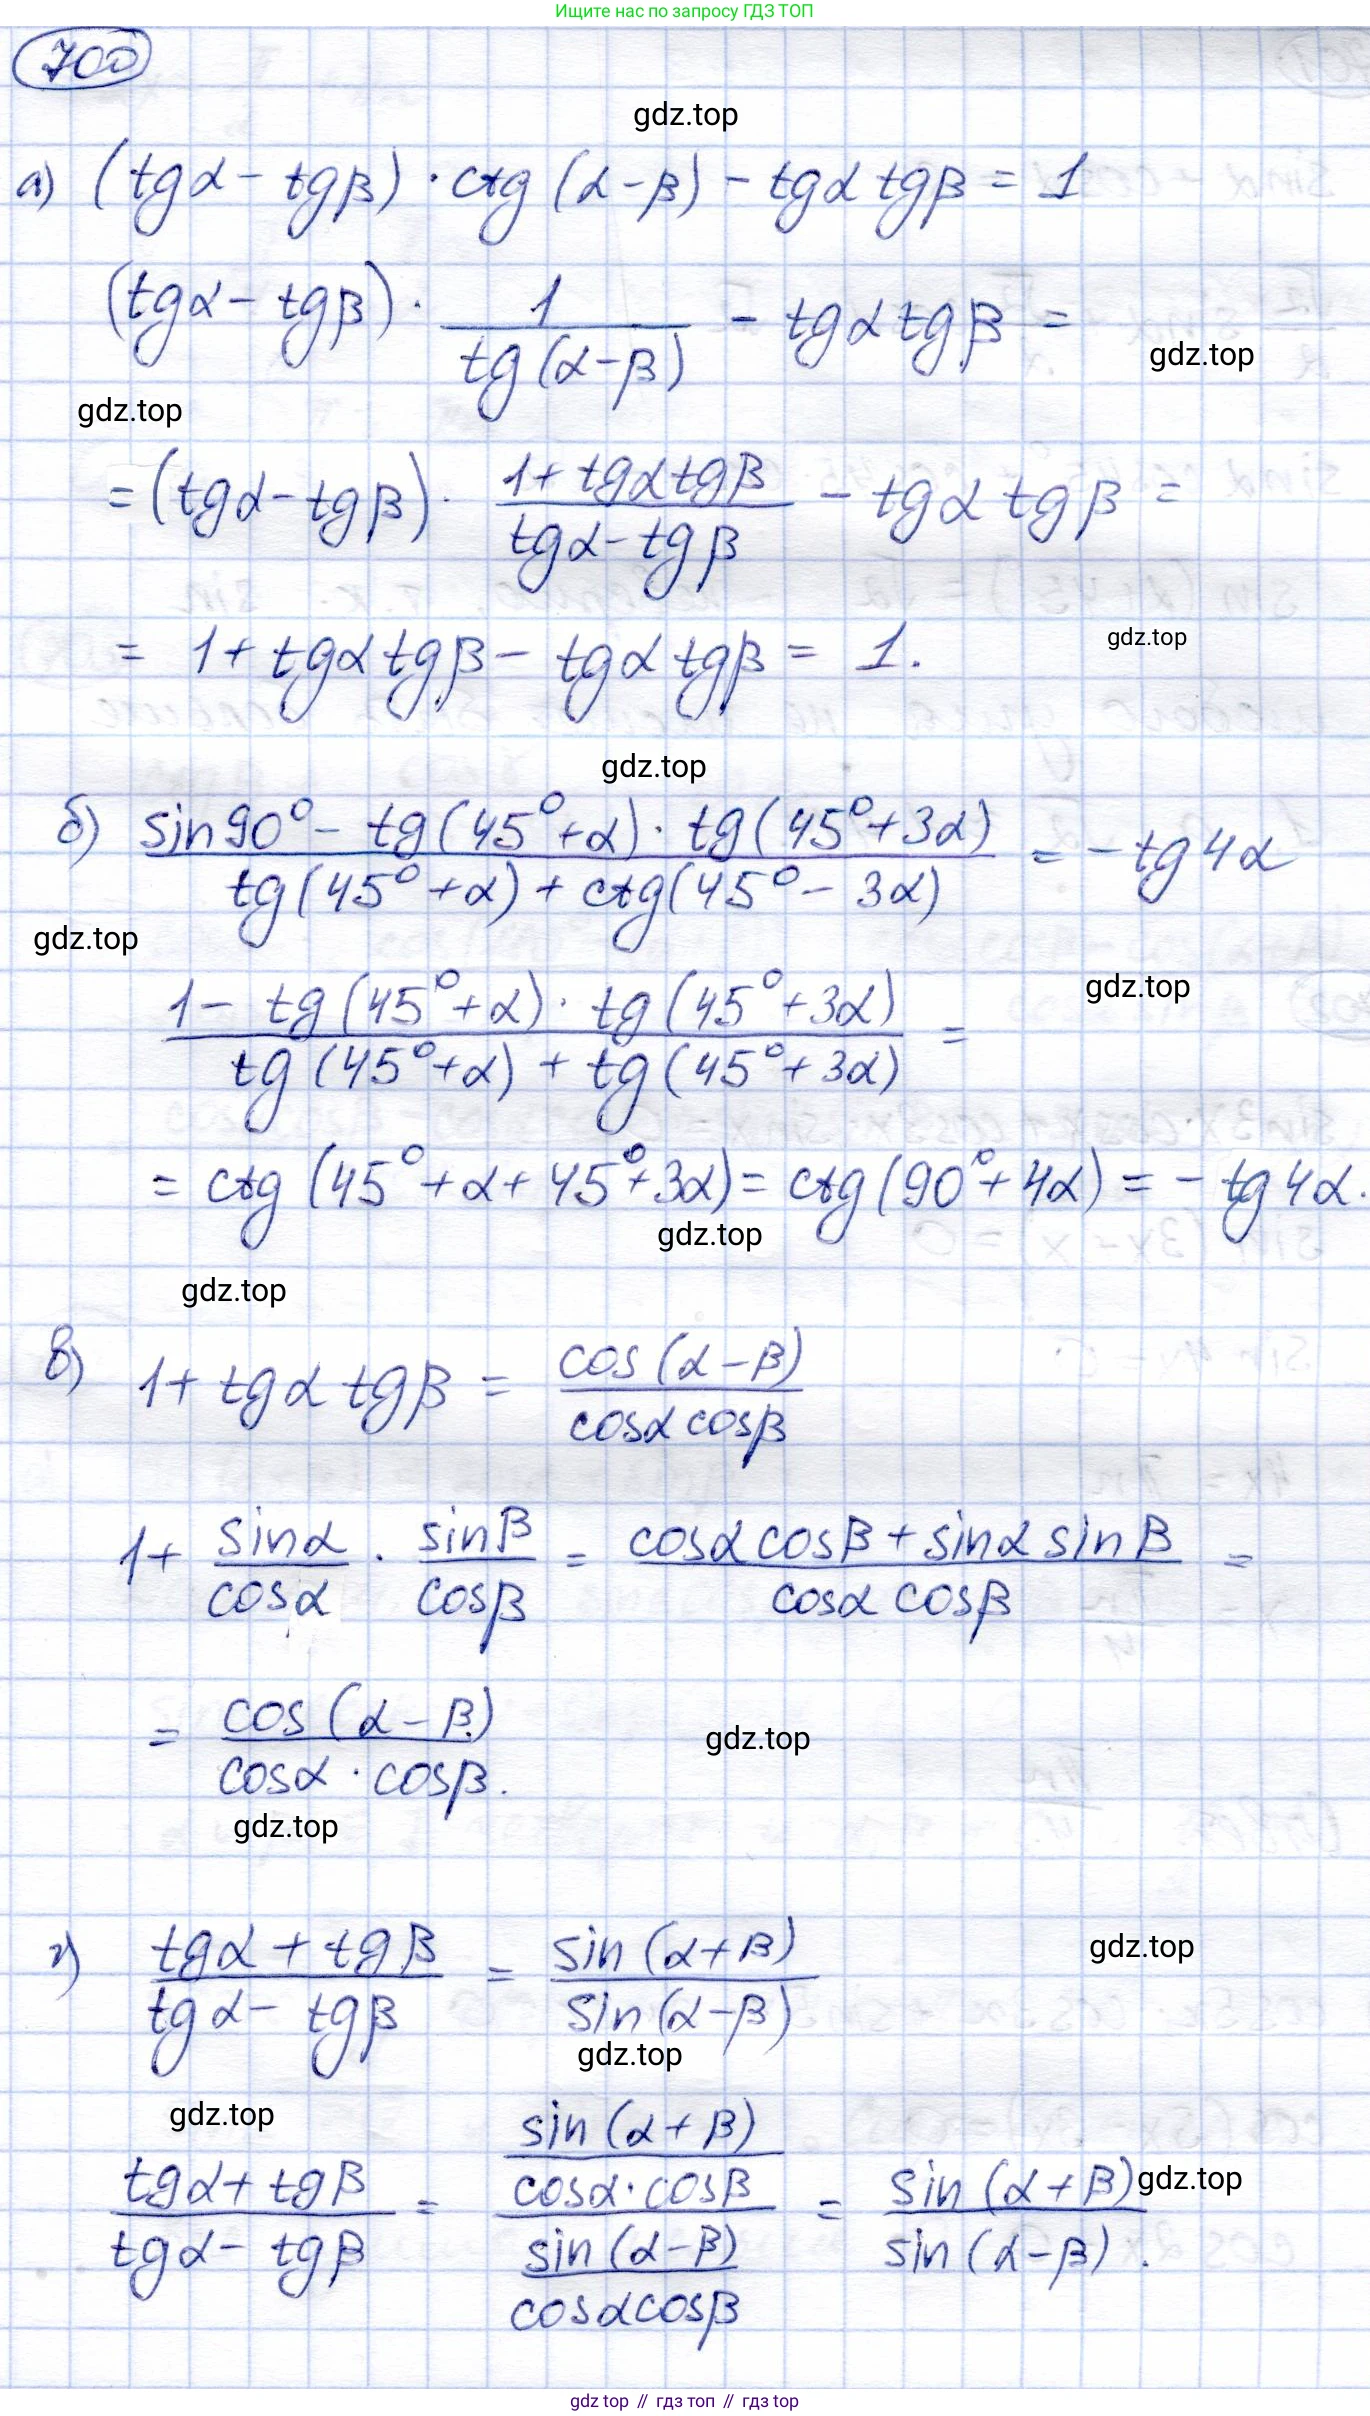 Ищите нас по запросу ГДЗ ТОП
700
gdz.top
а) (tgα - tgβ) · ctg (α - β) - tgα tgβ = 1
(tgα - tgβ) · 1 / tg(α - β) - tgα tgβ =
gdz.top
gdz.top
= (tgα - tgβ) · (1 + tgα tgβ) / (tgα - tgβ) - tgα tgβ =
= 1 + tgα tgβ - tgα tgβ = 1.
gdz.top
gdz.top
б) (sin90° - tg(45° + α) · tg(45° + 3α)) / (tg(45° + α) + ctg(45° - 3α)) = - tg 4α
gdz.top
gdz.top
(1 - tg(45° + α) · tg(45° + 3α)) / (tg(45° + α) + tg(45° + 3α)) =
= ctg (45° + α + 45° + 3α) = ctg (90° + 4α) = - tg 4α.
gdz.top
gdz.top
в) 1 + tgα tgβ = cos(α - β) / cosα cosβ
1 + sinα / cosα · sinβ / cosβ = (cosα cosβ + sinα sinβ) / cosα cosβ =
= cos(α - β) / cosα · cosβ.
gdz.top
gdz.top
г) (tgα + tgβ) / (tgα - tgβ) = sin(α + β) / sin(α - β)
gdz.top
gdz.top
gdz.top
(tgα + tgβ) / (tgα - tgβ) = (sin(α + β) / cosα · cosβ) / (sin(α - β) / cosα cosβ) = sin(α + β) / sin(α - β).
gdz.top
gdz top // гдз топ // gdz top